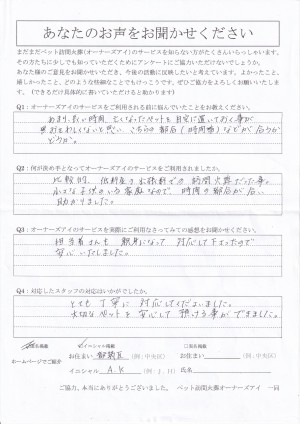 あなたのお声をお聞かせください
まだまだペット訪問火葬(オーナーズアイ)のサービスを知らない方がたくさんいらっしゃいます。
その方たちに少しでも知っていただくためにアンケートにご協力いただけないでしょうか。
あなた様のご意見をお聞かせいただき、今後の活動に反映したいと考えています。よかったこと、
嬉しかったこと、どのような些細なことでもけっこうです。ぜひご協力をよろしくお願いいたします。
(できるだけ具体的に書いていただけると助かります)
Q1：オーナーズアイのサービスをご利用される前に悩んでいたことをお教えください。
あまり長い時間、亡くなったペットを自宅に置いておく事が
こちらの都合(時間帯)などが合うか
どうか。
Q2：何が決め手となってオーナーズアイのサービスをご利用されましたか。
比較的、低料金での訪問火葬だった事。
小さな子供のいる家庭なので、時間の都合が合い
助かりました。
Q3：オーナーズアイのサービスを実際にご利用なさってみての感想をお聞かせください。
担当者さんも親身になって対応して下さったので
安心いたしました。
Q4：対応したスタッフの対応はいかがでしたか。
とても丁寧に対応してくださいました。
大切なペットを安心して預ける事ができました。
イニシャル掲載 □実名掲載
ホームページでご紹介
お住まい 都筑区 (例：中央区) お住まい (例：中央区)
イニシャル A.K 氏名
ご協力、本当にありがとうございました。 ペット訪問火葬オーナーズアイ 一同